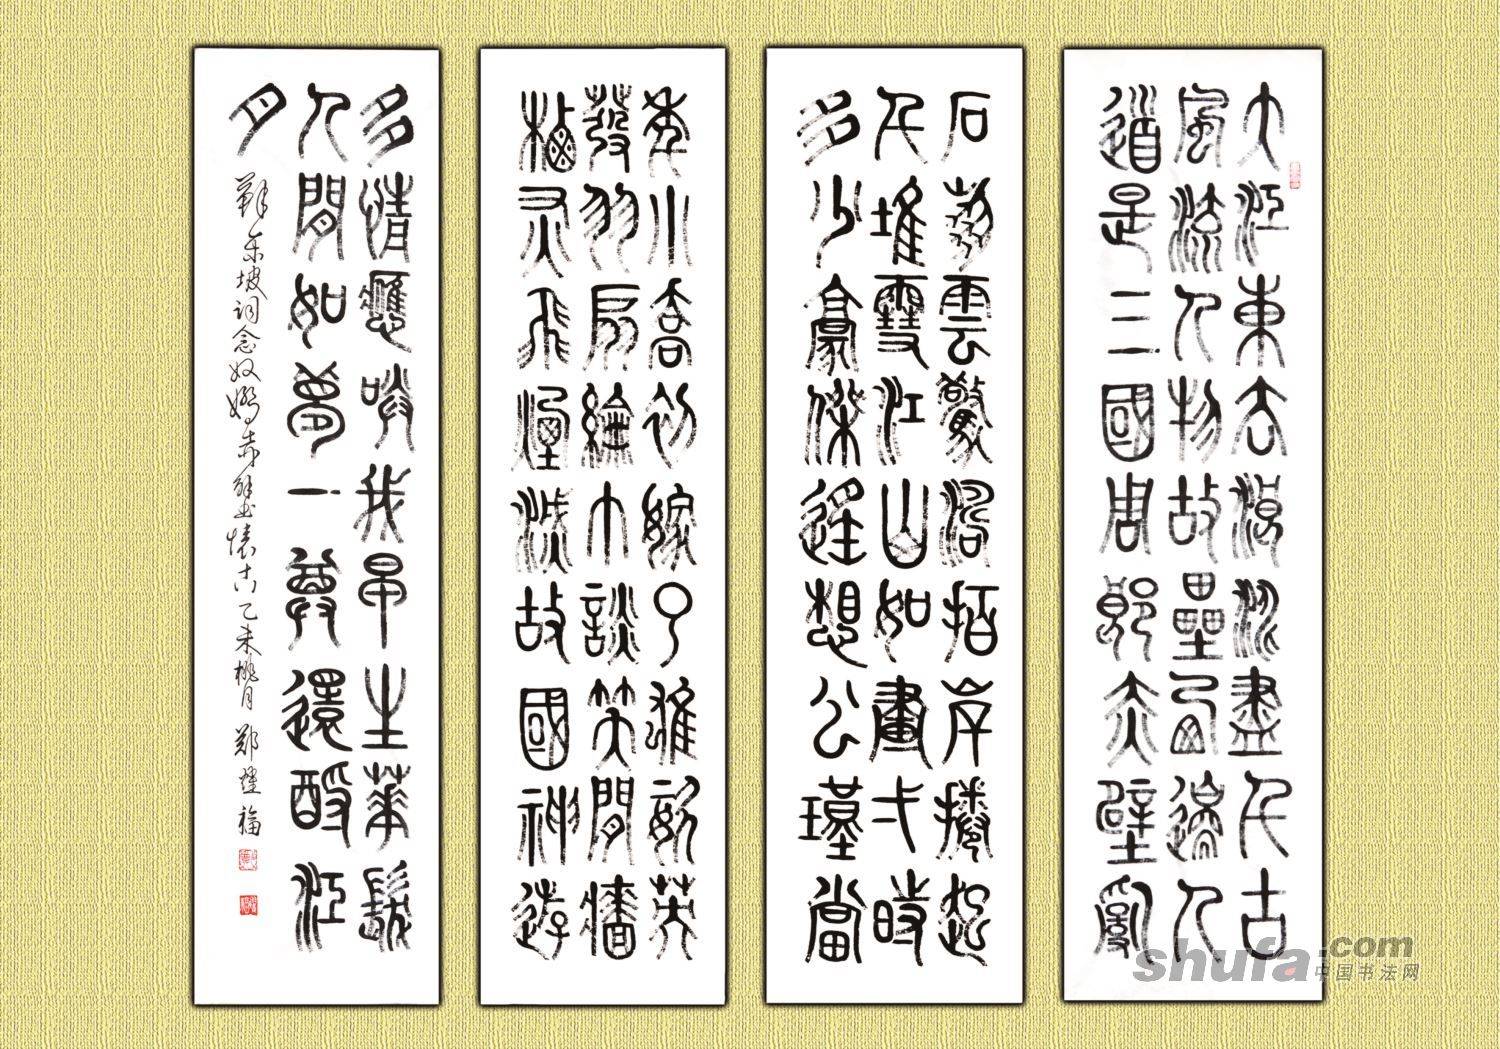 大江東去浪淘盡千古
風流人物故壘西邊人
道是三國周郎赤壁亂
石崩雲驚濤拍岸捲起
千堆雪江山如畫弌時
多少豪傑遙想公瑾當
年小喬初嫁了雄姿英
發羽扇綸巾談笑間檣
櫓灰飛煙滅故國神遊
多情應笑我早生華髮
人間如夢一尊還酹江
月
蘇東坡词念奴嬌赤壁懷古乙未桃月鄭福
shufa.com
中国书法网